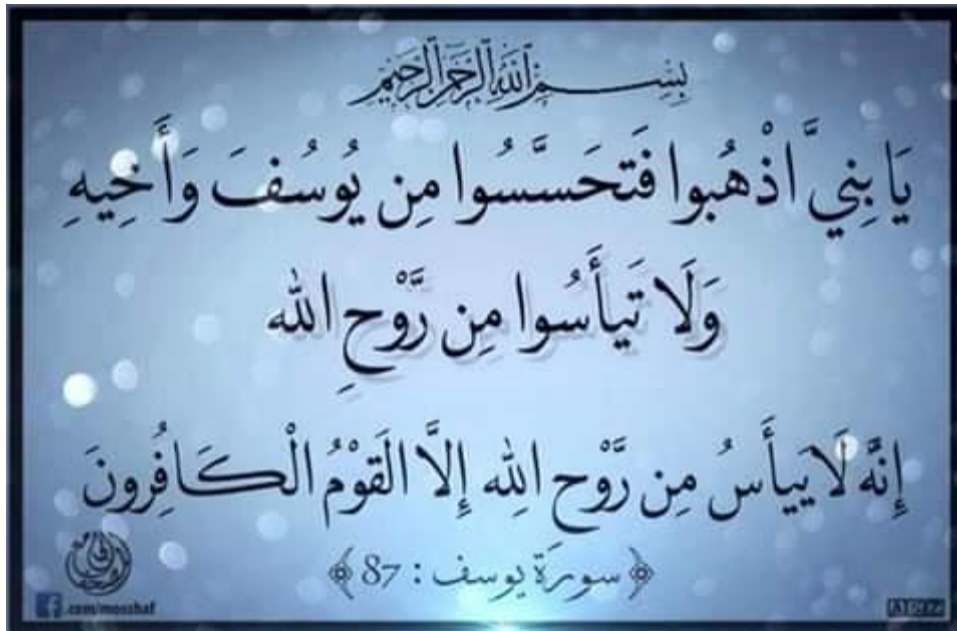 بِسْمِ اللَّهِ الرَّحْمَٰنِ الرَّحِيمِ
يَا بَنِيَّ اذْهَبُوا فَتَحَسَّسُوا مِن يُوسُفَ وَأَخِيهِ
وَلَا تَيأَسُوا مِن رَّوْحِ الله
إِنَّهُ لَا ييأَسُ مِن رَّوْحِ اللهِ إِلَّا الْقَوْمُ الْكَافِرُونَ
﴿سورة يوسف : 87﴾
.com/mosshaf